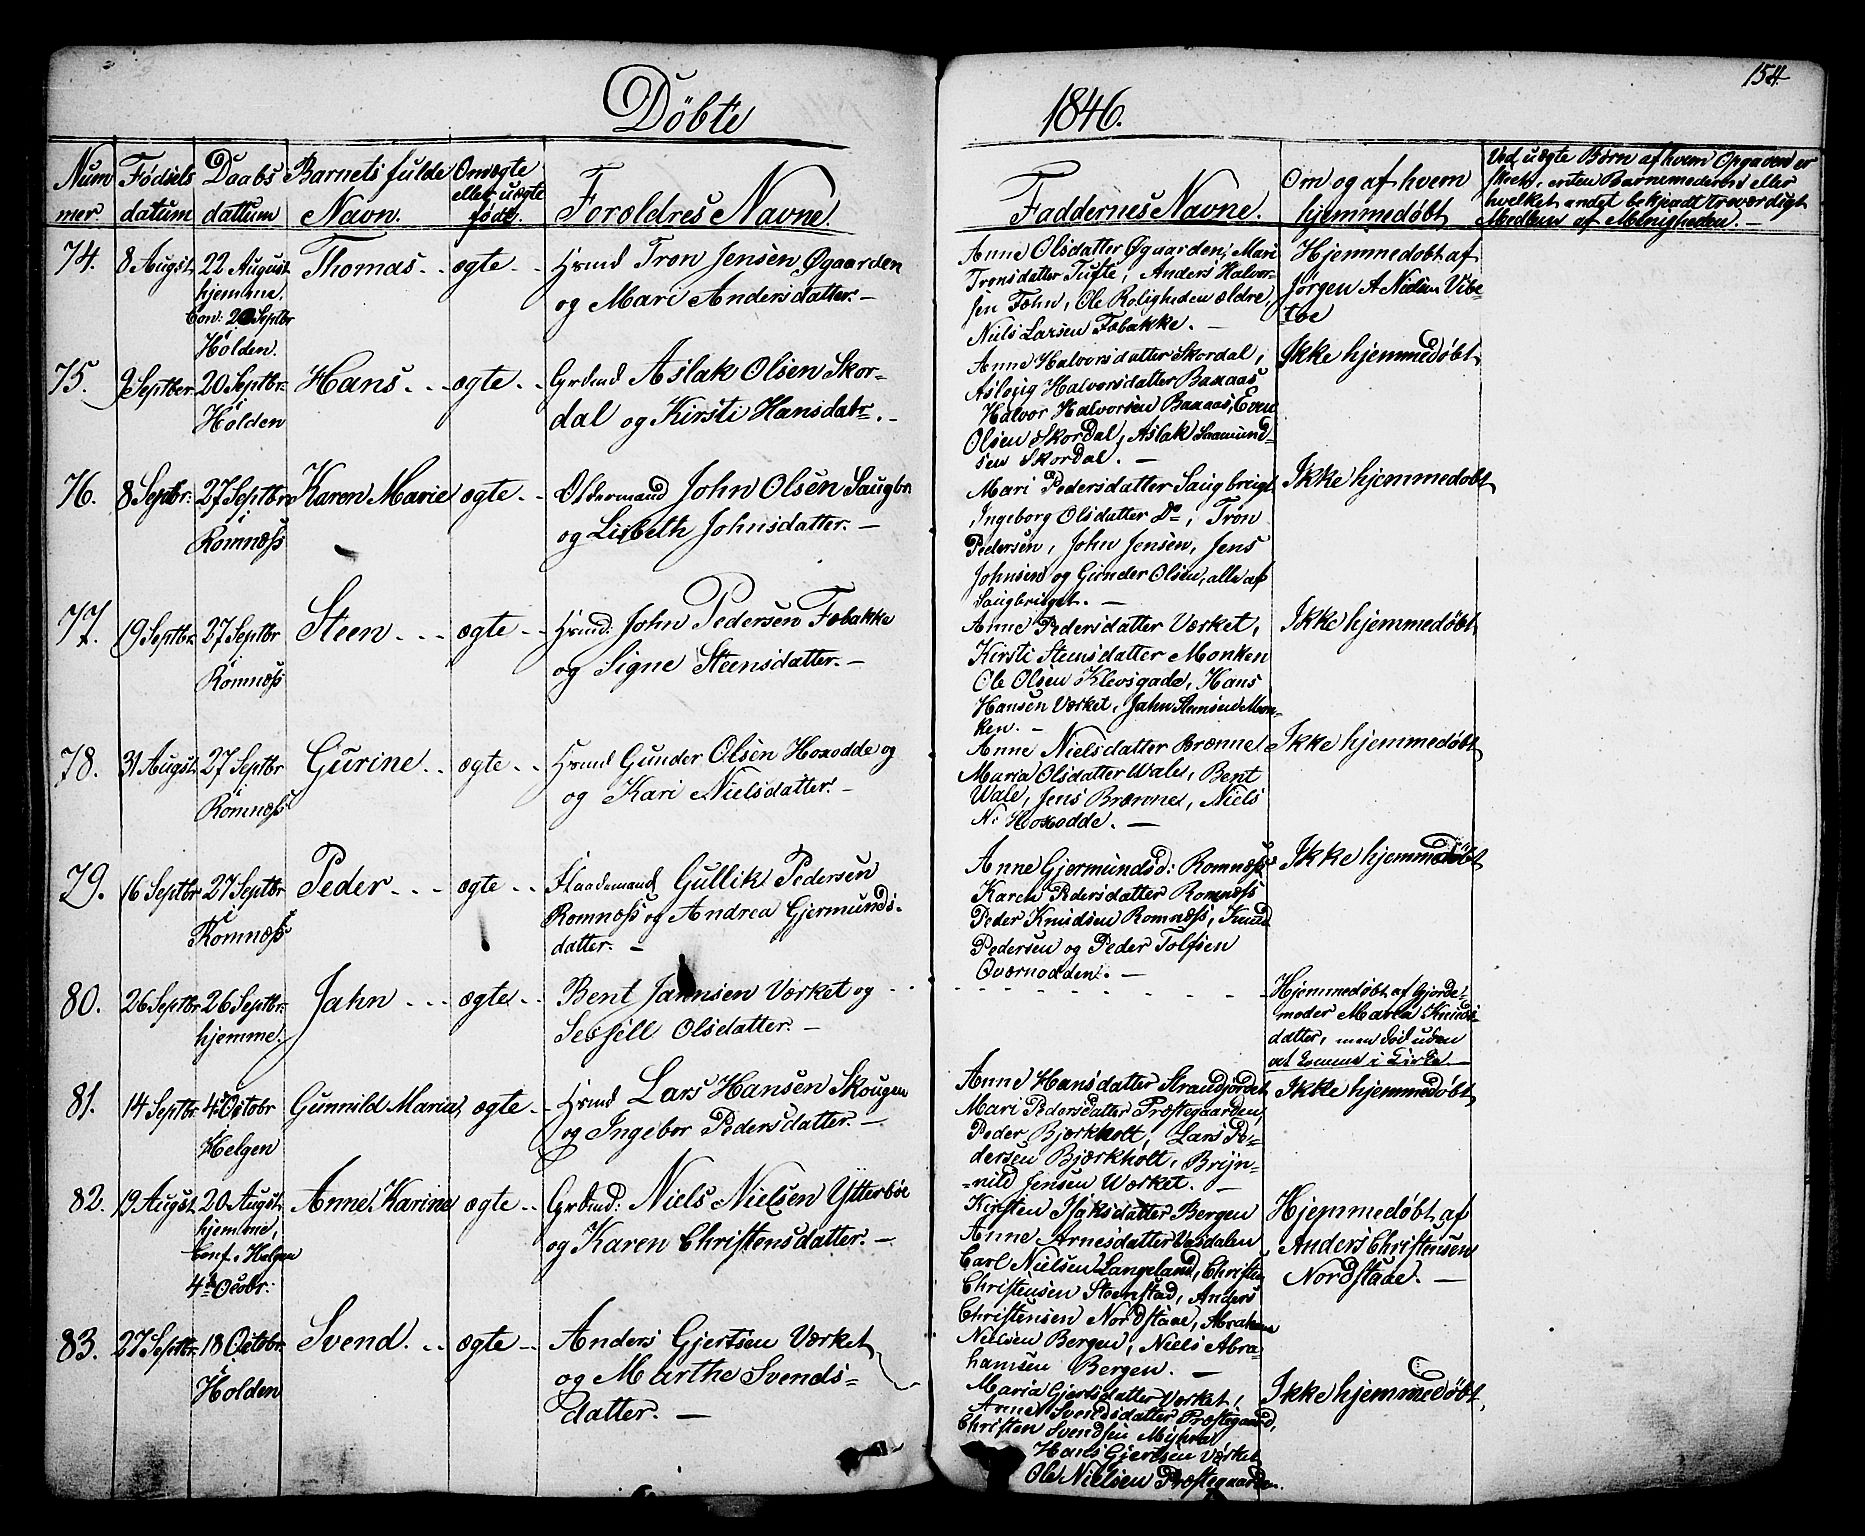 Døbte
1846.
154.
Num
mer
Fødsels
datum
Daabs
dattum
Barnets fulde
Navn.
Om ægte
eller uægte
født.
Forældres Navne.
Faddernes Navne.
Om og af hvem
hjemmedøbt
Ved uægte Børn af hvem Opgaven er
skeet, enten Barnemoderen eller
hvilket andet bekjendt troværdigt
Medlem af Menigheden. –
74.
8 Augst
22 August
hjemme.
Con: 20 Septbr
i
Holden.
Thomas
ægte
Hrmd Tron Jensen Øgaarden
og Mari Andersdatter. –
Anne Olsdatter Øgaarden, Mari
Tronsdatter Tufte, Anders Halvor-
sen Fæhn, Ole Roligheden ældre,
Niels Larsen Fobakke. –
Hjemmedøbt af
Jørgen A Nielsen Vibe-
toe
75.
9 Septber
20 Septbr.
i
Holden
Hans
ægte
Grdmd Aslak Olsen Skor-
dal og Kirsti Hansdatr. –
Anne Halvorsdatter Skordal,
Aslaug Halvorsdatter Baaaas
Halvor Halvorsen Baaaas, Even
Olsen Skordal, Aslak Saamund-
sen Skordal. –
Ikke hjemmedøbt
76.
8 Septbr.
27 Septbr
i
Romnæss
Karen Marie
ægte
Oldermand John Olsen Saugbr.
og Lisbeth Johnsdatter. –
Mari Pedersdatter Saugbruget
Ingeborg Olsdatter Do, Tron
Pedersen, John Jensen, Jens
Johnsen og Gunder Olsen, alle af
Saugbruget. –
Ikke hjemmedøbt
77.
19 Septbr.
27 Septbr
i
Romnæss
Steen
ægte
Hrmd: John Pedersen Fobakke
og Signe Steensdatter. –
Anne Pedersdatter Værket,
Kirsti Steensdatter Monken
Ole Olsen Klevsgade, Hans
Hansen Værket, Jahn Steensen Mon-
ken. –
Ikke hjemmedøbt
78.
31 Augst
27 Septbr
i
Romnæss
Gurine
ægte
Hrmd Gunder Olsen Hoxodde og
og Kari Nielsdatter. –
Anne Nielsdatter Brænne
Maria Olsdatter Wale, Bent
Wale, Jens Brænne, Niels
N: Hoxodde. –
Ikke hjemmedøbt
79.
16 Septbr
27 Septbr
i
Romnæss
Peder
ægte
Flaademand Gullik Pedersen
Romnæss og Andrea Gjermunds-
datter. –
Anne Gjermundsd: Romnæss
Karen Pedersdatter Romnæss
Peder Knudsen Romnæss, Knud
Pedersen og Peder Tolfsen
Qværnodden. –
Ikke hjemmedøbt
80.
26 Septbr
26 Septbr.
hjemme.
Jahn
ægte
Bent Jannsen Værket og
Olsdatter. –
Hjemmedøbt af Gjorde-
moder Maria Knuds-
datter, men død uden
at komme i Kirke. –
81.
14 Septbr
4 Octobr
Helgen
Gunnild Maria
ægte
Hrmd Lars Hansen Skougen
og Ingebor Pedersdatter. –
Anne Hansdatter Strandjordet
Mari Pedersdatter Præstegaarden,
Peder Bjærkholt, Lars Pe-
dersen Bjærkholt, Bryn-
nild Jensen Værket. –
Ikke hjemmedøbt
82.
19 Augst
20 Augst
hjemme,
Conf. i Helgen
4de Octobr:
Anne Karine
ægte
Grdmd: Niels Nielsen Ytterbøe
og Karen Christensdatter. –
Kirsten Isaksdatter Bergen
Anne Arnesdatter Vasdalen
Carl Nielsen Langeland, Christen
Christensen Steenstad, Anders
Christensen Nordstaae, Abraham
Nielsen Bergen, Niels Abra-
hamsen Bergen. –
Hjemmedøbt af
Anders Christensen
Nordstaae. –
83.
27 Septbr.
18 Octobr.
i
Holden
Svend.
ægte
Anders Gjertsen Værket
og Marthe Svends-
datter. –
Maria Gjertsdatter Værket,
Anne Svendsdatter Præstegaard,
Christen Svendsen Myhra
Hans Gjertsen Værket
Ole Nielsen Præstegaarden.
Ikke hjemmedøbt,